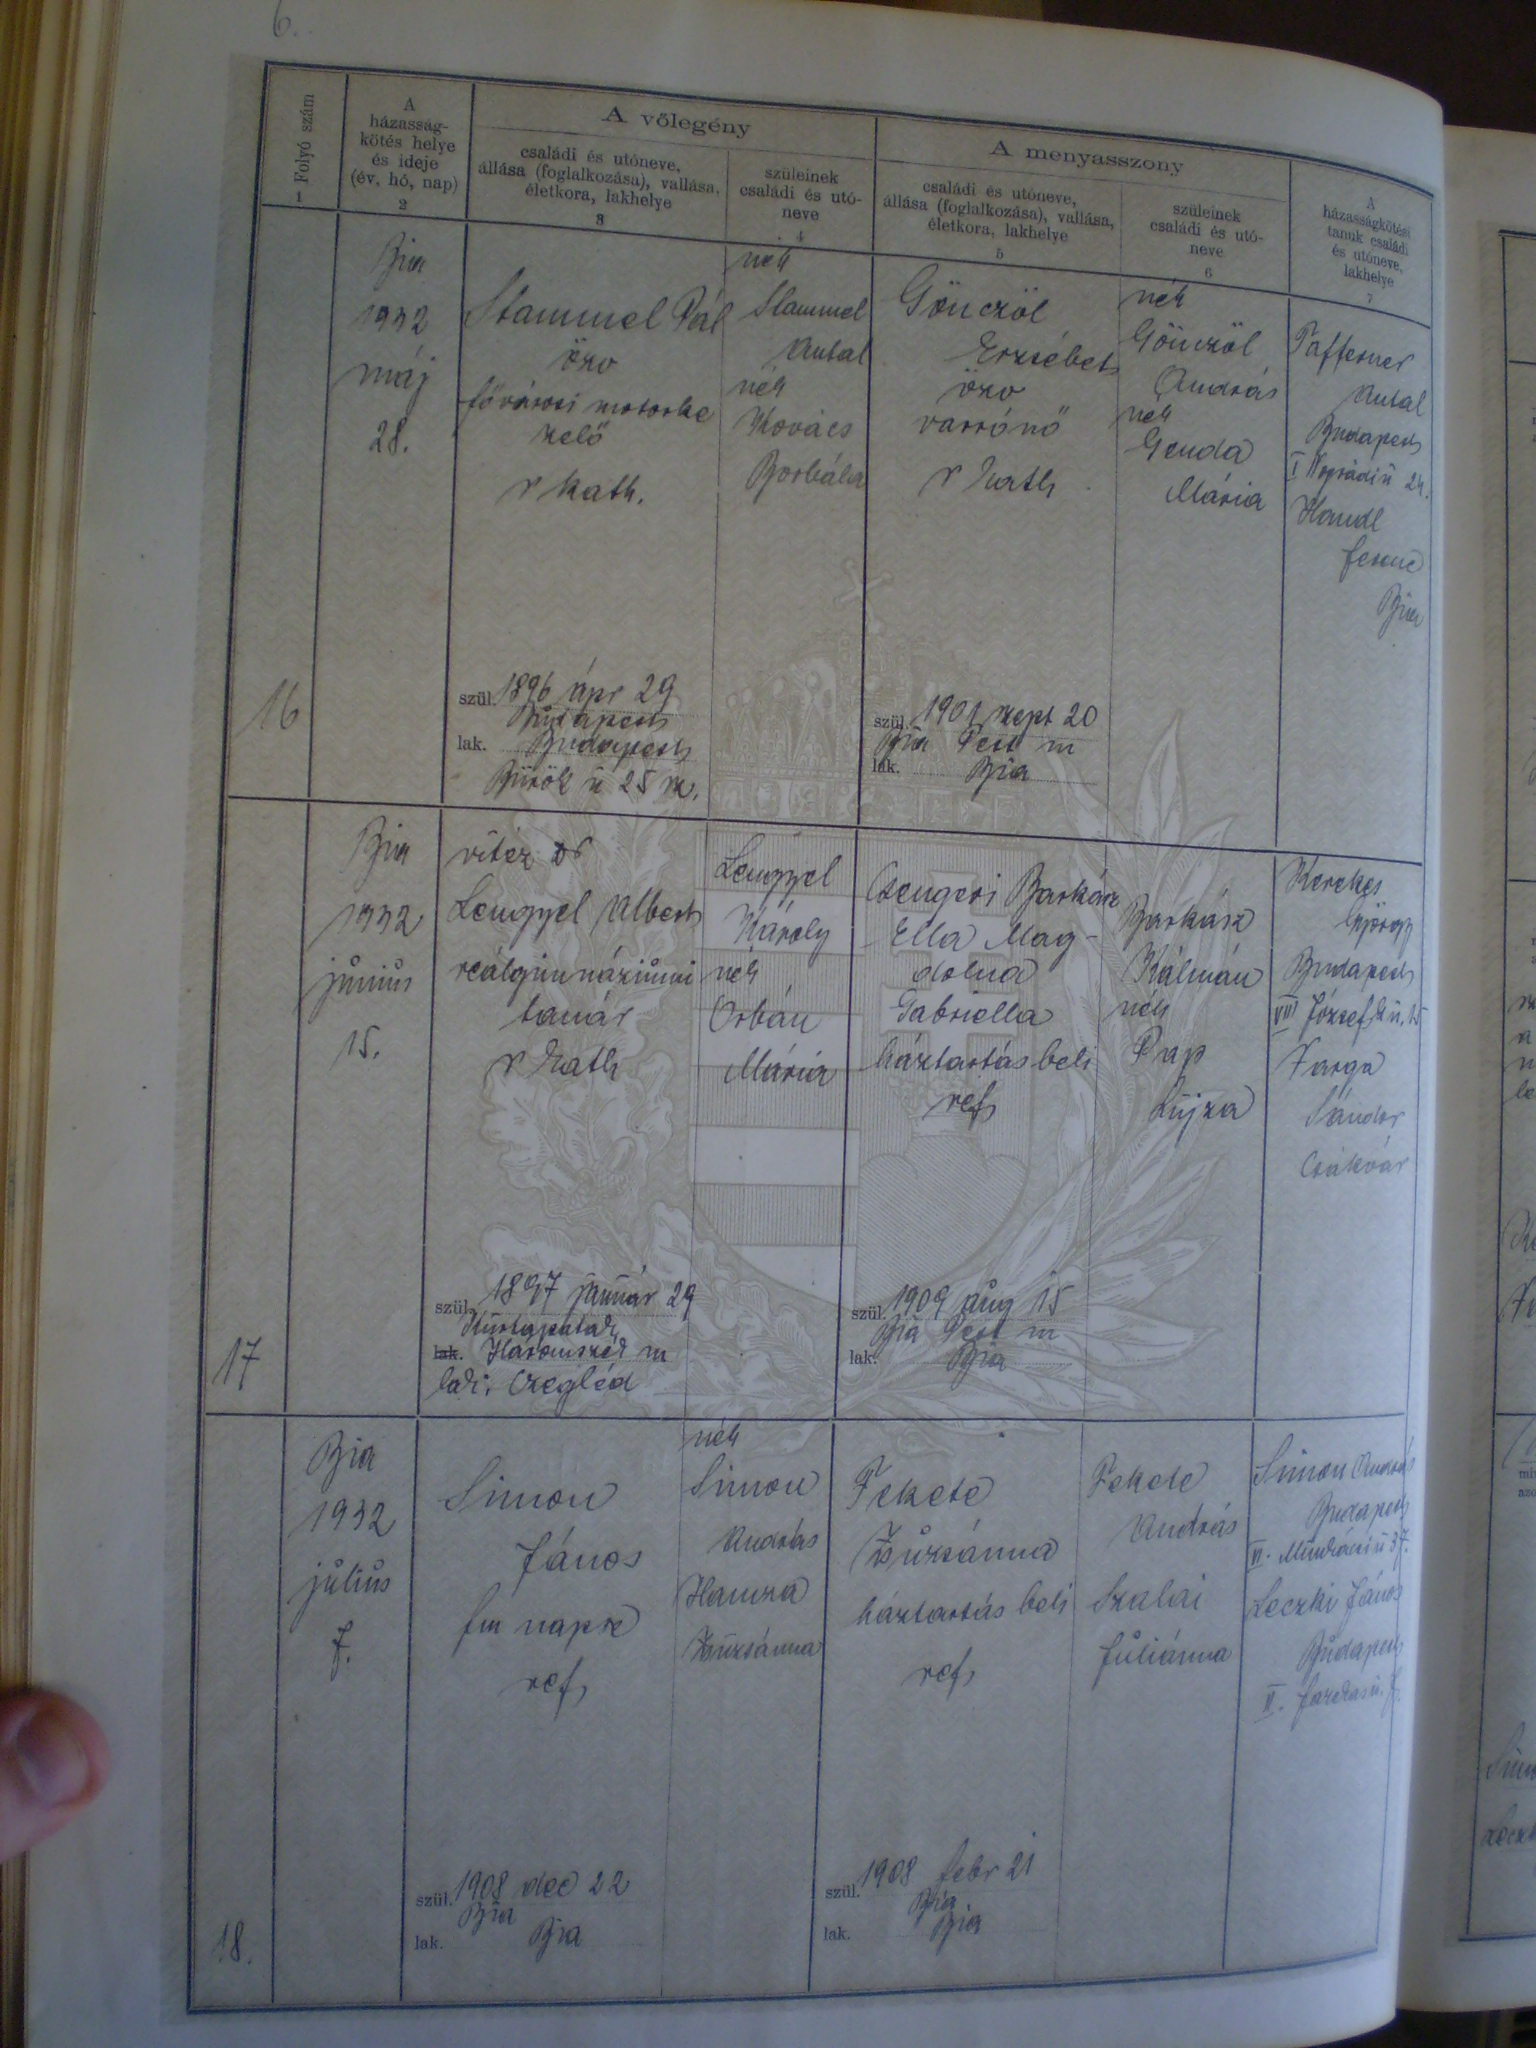 6.
Folyó szám
1
A
házasság-
kötés helye
és ideje
(év, hó, nap)
2
A vőlegény
családi és utóneve,
állása (foglalkozása), vallása,
életkora, lakhelye
3
szüleinek
családi és utó-
neve
4
A menyasszony
családi és utóneve,
állása (foglalkozása), vallása,
életkora, lakhelye
5
szüleinek
családi és utó-
neve
6
A
házasságkötési
tanuk családi
és utóneve,
lakhelye
7
16
Bia
1932
máj
28.
Stammel Pál
özv
fővárosi motorke
zelő
r kath.
szül. 1896 ápr 29
Budapest
lak. Budapest
Bürök u 25 sz.
néh
Stammel
Antal
néh
Kovács
Borbála
Gönczöl
Erzsébet
özv
varrónő
r kath
szül. 1901 szept 20
Bia Pest m
lak. Bia
néh
Gönczöl
András
néh
Genda
Mária
Pafferner
Antal
Budapest
I 24.
Handl
Ferenc
Bia
17
Bia
1932
június
15.
vitéz dr
Lengyel Albert
reálgimnáziumi
tanár
r kath
szül. 1897 január 29
lak. Háromszék m
lak. Czegléd
Lengyel
Károly
néh
Orbán
Mária
Csengeri Barkász
Ella Mag-
dolna
Gabriella
háztartásbeli
ref
szül. 1909 aug 15
Bia Pest m
lak. Bia
Barkász
Kálmán
néh
Pap
Lujza
Kerekes
György
Budapest
VIII József k u. 15
Varga
Sándor
Csákvár
18.
Bia
1932
július
7.
Simon
János
fm napsz
ref
szül. 1908 dec 22
Bia
lak. Bia
néh
Simon
András
Hamza
Zsuzsánna
Fekete
Zsuzsánna
háztartásbeli
ref
szül. 1908 febr 21
Bia
lak. Bia
Fekete
András
Szalai
Juliánna
Simon András
Budapest
VI. u 37.
Leczki János
Budapest
II. Fazekas u. 7.